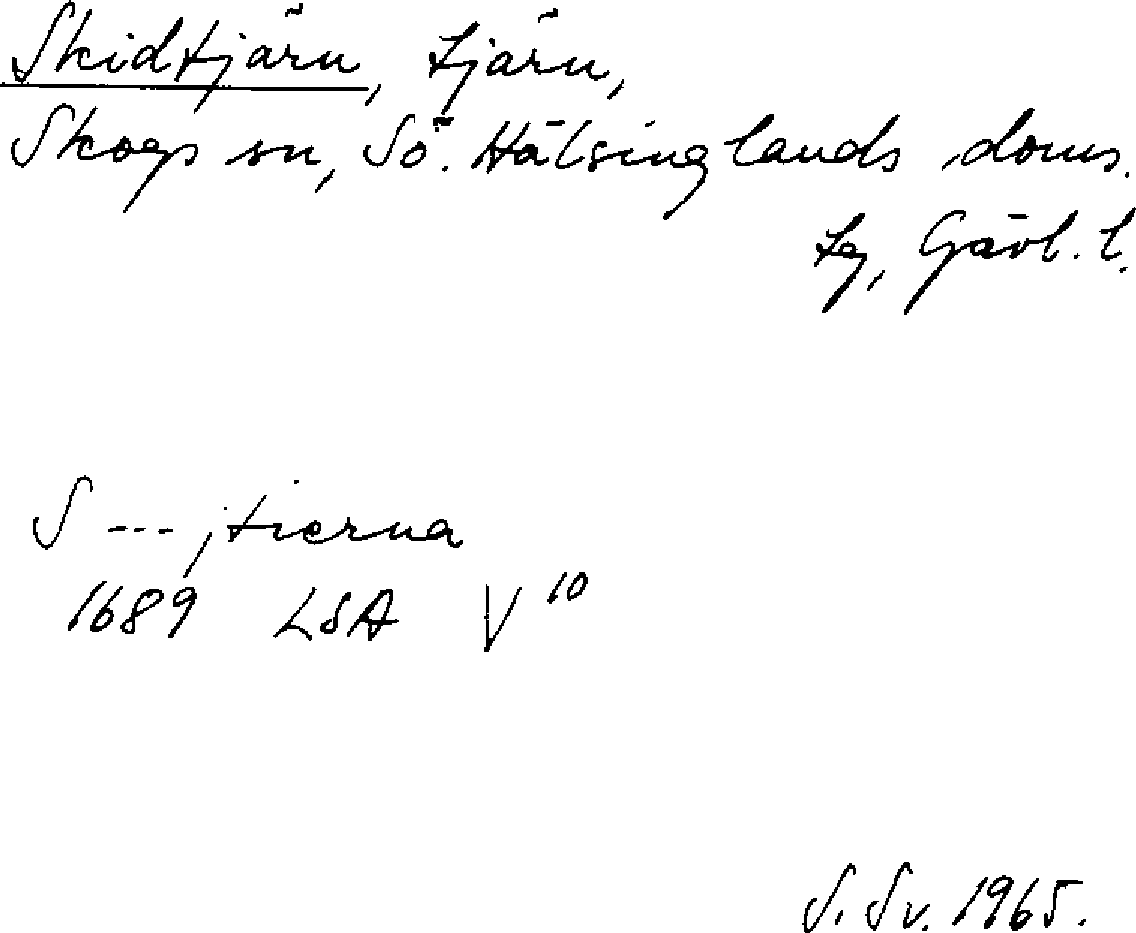 Skidtjärn, tjärn,
Skogs sn, Sö. Hälsinglands doms.
tg, Gävl. l.
S ---, tierna
1689 LSA V 10
S. Sv. 1965.